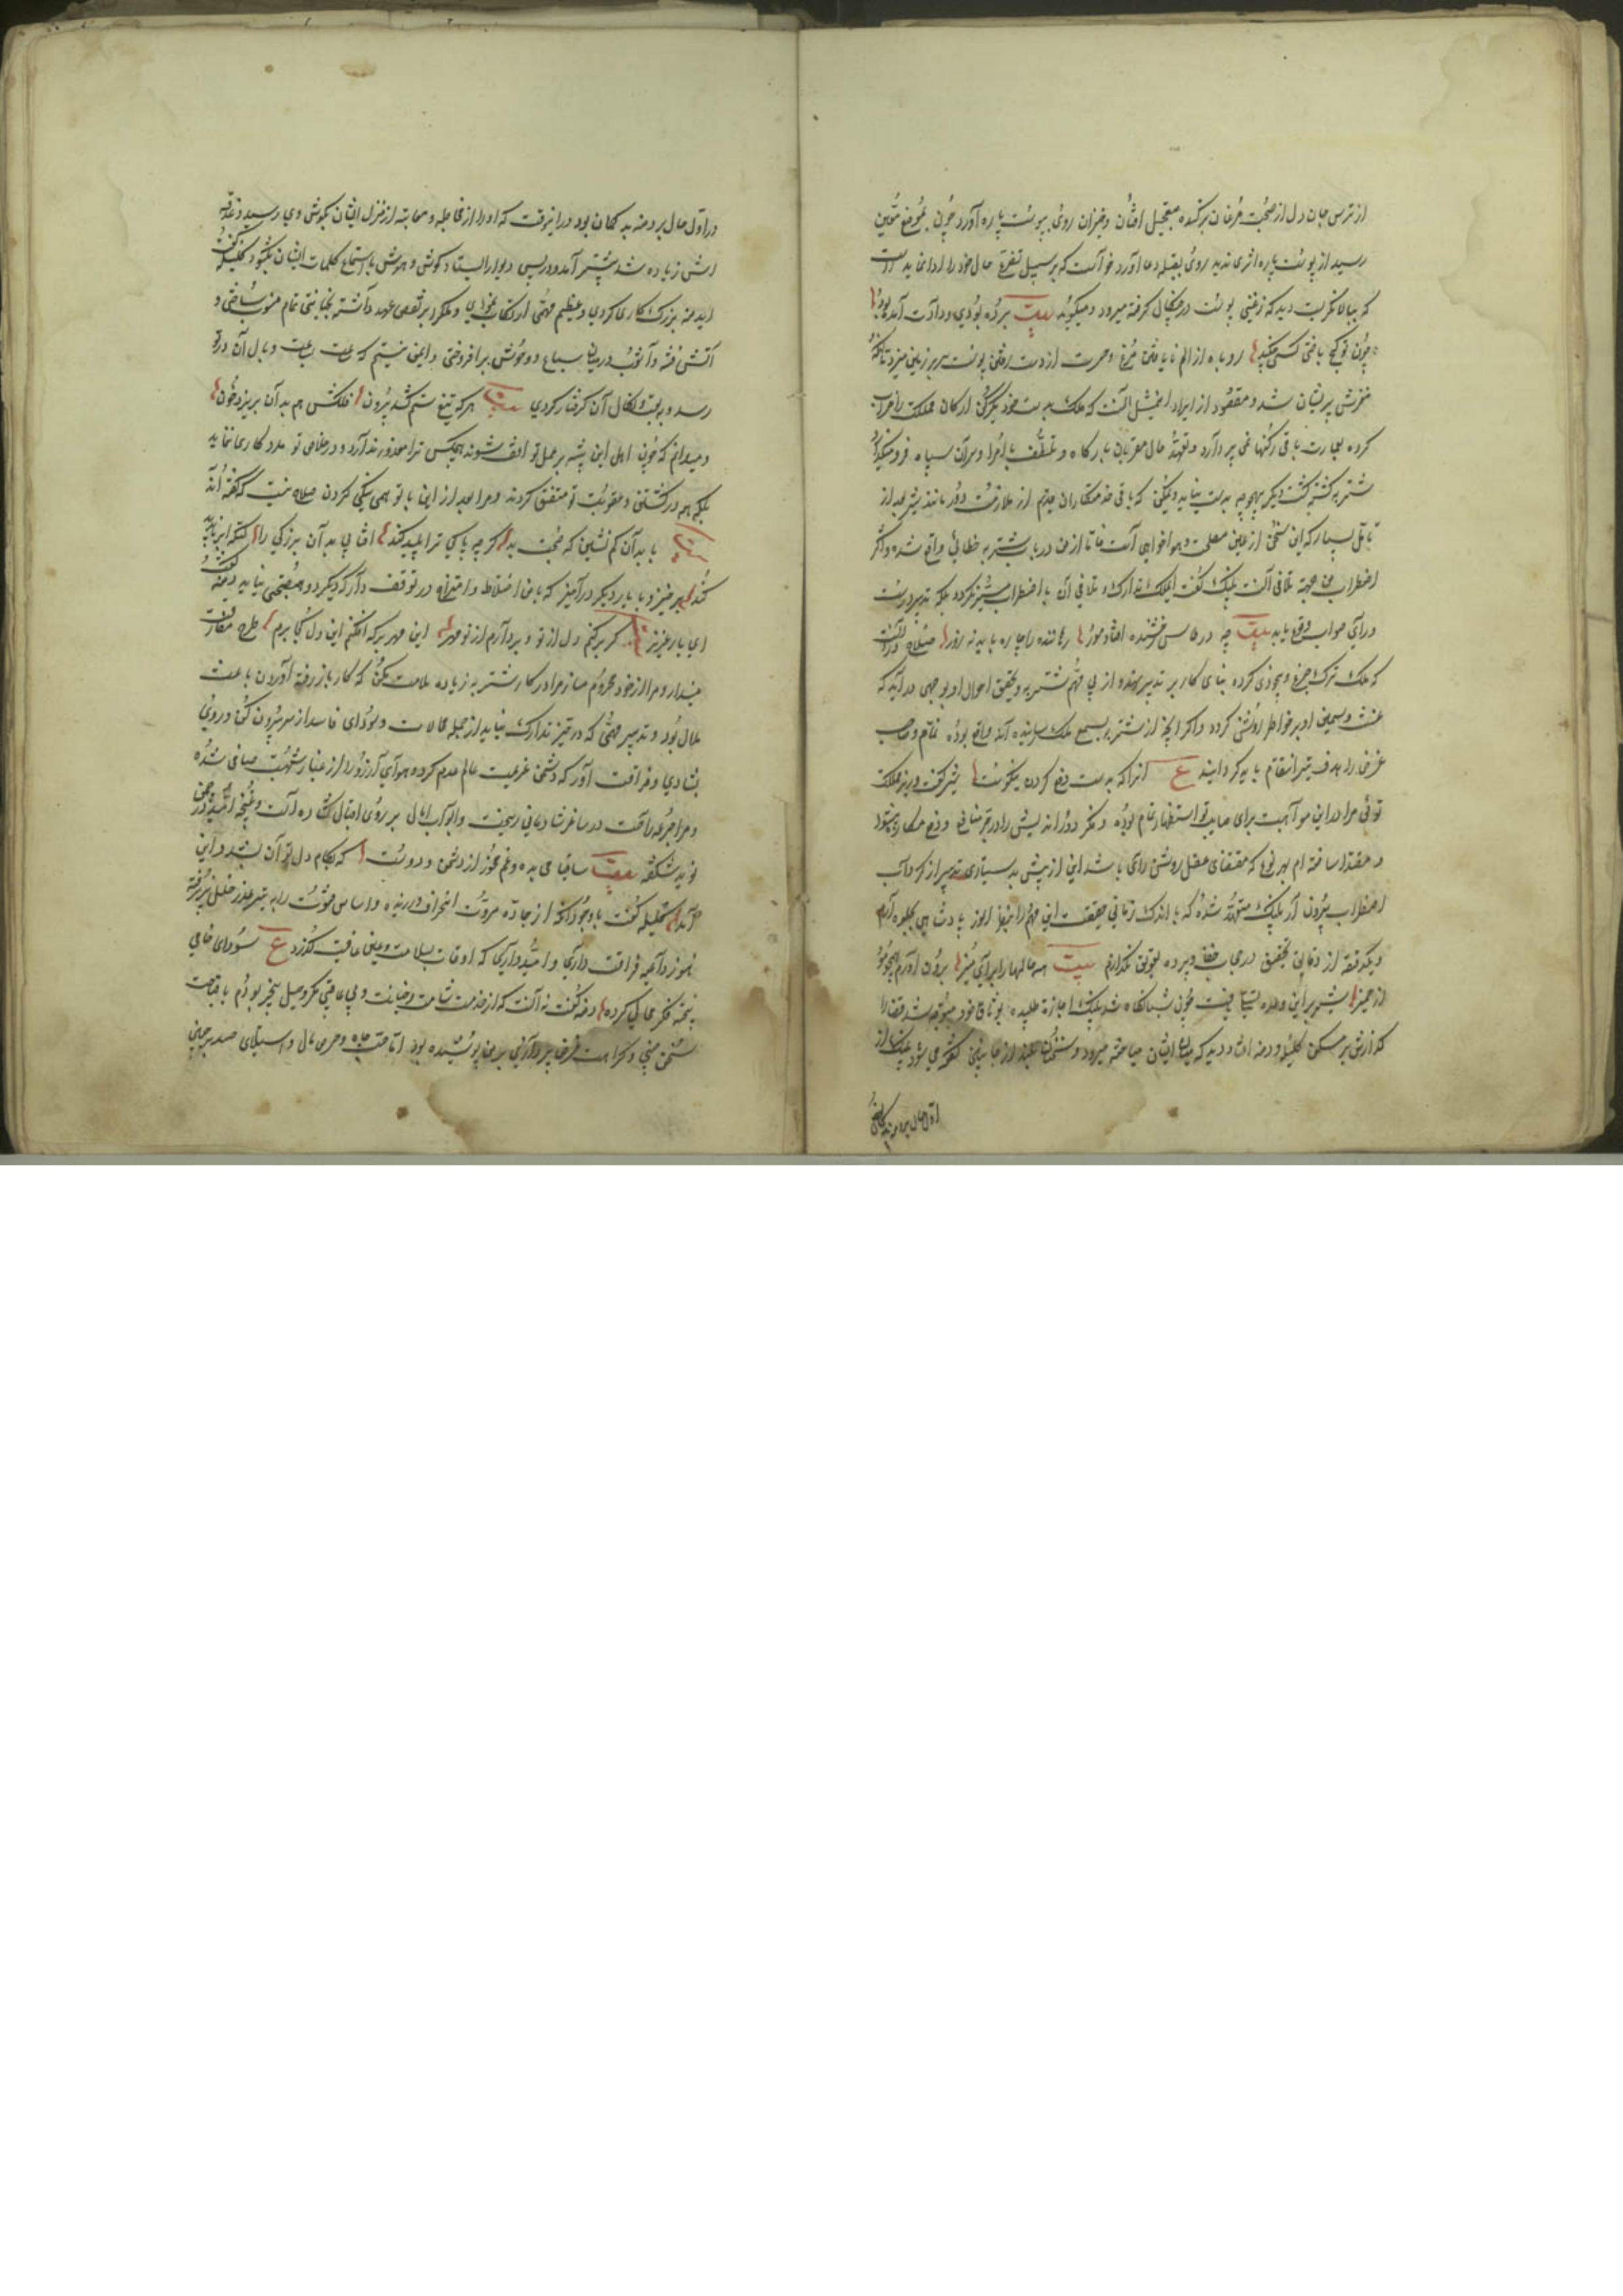 از ترس جان دل از صحبت مرغان برکنده بتعجیل افتان و خیزان روی بپوست پاره آورد چون بموضع معین
رسید از پوست پاره اثری ندید روی بقبله دعا آورد خواست که بر سبیل تضرع حال خود را ادا نماید
که ببالا نگریست دید که زغنی پوست در چنکال گرفته میرود و میکوید بیت برده بودی و دادت آمده بود
چون تو کج باختی کسی چکند روباه از الم نایافتن مرغ و حسرت از دست رفتن پوست سر بر زمین میزد تا
مغزش پریشان شد و مقصود از ایراد این مثل آنست که ملک بدست خود یکرکن ارکان مملکت را خراب
کرده بعمارت باقی رکنها نمی پردازد و تعهد حال مقربان بارگاه و تلطف با امرا و سران سپاه فرو میگذارد
شتربه کشته کشت دیگر بهیچ وجه بدست نیاید و یمکن که باقی خدمتکاران قدیم از ملازمت دور مانند شیر بعد از
تامل بسیار که این سخن از عین مصلحت و هواخواهی است فاما از من در باب شتربه خطائی واقع شده و اکثر
اضطراب من بجهة تلافی آنست پلنک گفت ای ملک تدارک و تلافی آن با اضطراب میسر نکردد بلکه بتدبیر درست
و رای صواب وقوع یابد بیت چه در طاس رخشنده افتاد مور رهاننده را چاره باید نه زور صلاح در آنست
که ملک ترک جزع و بیخودی کرده بنای کار بر تدبیر نهد و از پی مهم شتربه و تحقیق احوال او بوجهی در آید که
غث و سمین او بر خواطر روشن کردد و اگر آنچه از شتربه بسمع ملک رسانیده اند واقع بوده غماز و صاحب
غرض را هدف تیر انتقام باید کردانید ع انرا که بدست دفع کردن نیکوست شیر گفت وزیر مملکت
توئی مرا در این مواهبت برای صایب تو استظهار تمام بوده و فکر دور اندیش را در تحصیل منافع و دفع مکاره پیشوا
و مقتدا ساخته ام بهر نوع که مقتضای عقل روشن رای باشد این از پیش بدستیاری تدبیر از گرداب
اضطراب بیرون آر پلنک متعهد شده که باندک زمانی حقیقت این مهم را بنظر انور پادشاهی جلوه آرم
و یکدقیقه از دقایق تحقیق در حجاب خفا و پرده تعویق نکذارم بیت همه حالها را برای منیر برون آورم همچو موی
از خمیر شیر بر این وعده تسلی یافت چون شبانگاه شد پلنک اجازه طلبیده بوثاق خود متوجه شد قضا را
گذارش بر مسکن کلیله و دمنه افتاد دید که میان ایشان مباحثه میرود و سخنان بلند از جانبین گفته می شود پلنک از
اول حال بر دمنه بدگمان
در اول حال بر دمنه بد گمان بود در اینوقت که آواز مجادله و معاتبه از منزل ایشان بگوش وی رسید دغدغه
اش زیاده شد پیشتر آمد و در پس دیوار ایستاد و گوش و هوش باستماع کلمات ایشان بگشود کلیله گفت
ای دمنه بزرگ کاری کردی و عظیم مهمی ارتکاب نمودی و ملک را بر نقض عهد داشته بخیانتی تمام منسوب ساختی و
آتش فتنه و آشوب در میان سباع و وحوش برافروختی و ایمن نیستم که ساعت بساعت وبال آن در تو
رسد و بوبقه و نکال آن گرفتار کردی بیت هر که تیغ ستم کشد بیرون فلکش هم بدان بریزد خون
و میدانم که چون اهل این بیشه بر عمل تو واقف شوند هیچکس ترا معذور ندارد و در خلاص تو مددکاری ننماید
بلکه همه در کشتن و عقوبت تو متفق کردند و مرا بعد از این با تو همسایگی کردن صلاح نیست که گفته اند
بیت با بدان کم نشین که صحبت بد گر چه پاکی ترا پلید کند آفتابی بدان بزرگی را لکه ابر ناپدید
کند برخیز و با یار دیگر در آمیز که با من اختلاط و امتزاج در توقف دار که دیگر در مصاحبتی نیاید دمنه گفت
ای یار عزیز گر برکنم دل از تو و بردارم از تو مهر این مهر بر که افکنم این دل کجا برم طرح مفارقت
مینداز و مرا از خود محروم مساز مرا در کار شتربه زیاده ملامت مکن که کار باز رفته آوردن باعث
ملال بود و تدبیر مهمی که در حیز تدارک نیاید از جمله محالات و سودای فاسد از سر بیرون کن و روی
بشادی و فراغت آور که دشمن عزیمت عالم عدم کرد و هوای آرزو را از غبار شبهت صافی شده
و مرا جرعه راحت در ساغر شادمانی ریخت و ابواب آمال بر روی اقبال گشاده است و غنچه امید در چمن
نوید شکفته بیت ساقیا می بده و غم مخور از دشمن و دوست که بکام دل تو آن بشد و این
آمد کلیله گفت با وجود آنکه از جاده مروت انحراف ورزیده و اساس فتوت را به تبر غدر خلل پذیرفته
هنوز داعیه فراغت داری و امید داری که اوقات بسلامت و عین عافیت گذرد ع سودای خامی
پخته فکر محال کرده دمنه گفت نه آنست که از خدمت شامت خیانت و بی عاقبتی مکر و حیل بیخبر بودم یا قباحت
سخن چینی و کراهت غرض پردازی بر من پوشیده بود اما حب جاه و حرص مال و استیلای حسد بر چنین